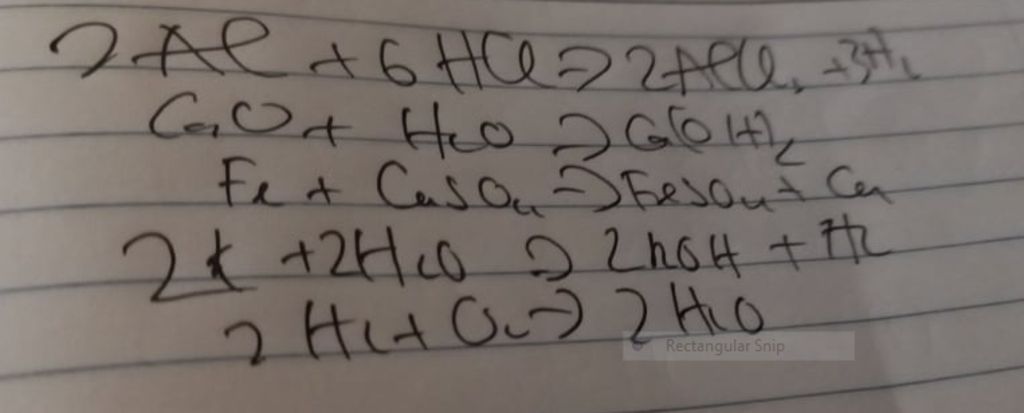 2Al + 6HCl => 2AlCl₃ + 3H₂
CaO + H₂O => Ca(OH)₂
Fe + CuSO₄ => FeSO₄ + Cu
2K + 2H₂O => 2KOH + H₂
2H₂ + O₂ => 2H₂O
Rectangular Snip